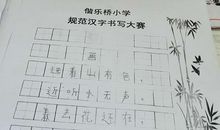 偕乐桥小学
规范汉字书写大赛
画
远看山有色，
近听水无声。
春去花还在，